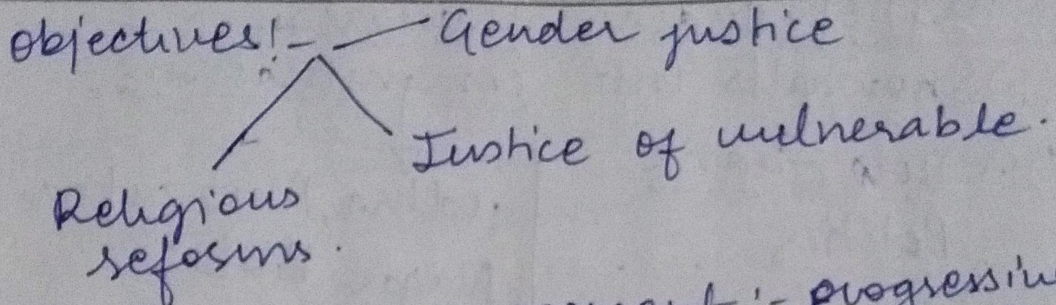 Objectives:- Gender justice
Justice of vulnerable.
Religious
reforms.
:- progressiv